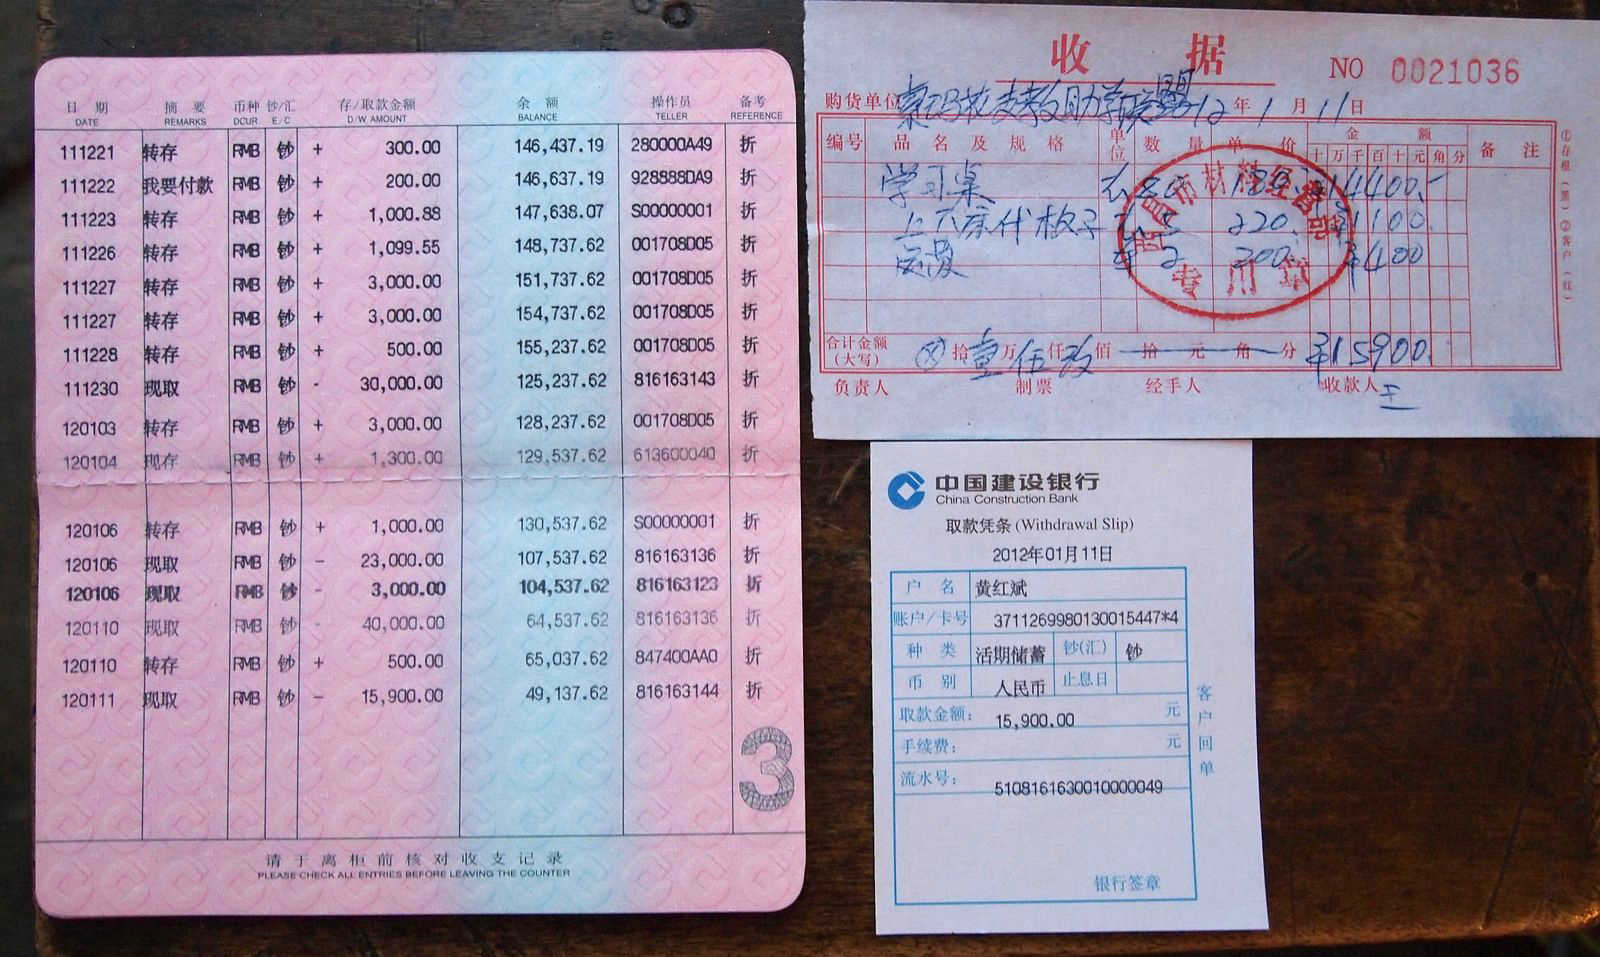 日 期 摘 要 币种 钞/汇 存/取款金额 余 额 操作员 备考
DATE REMARKS DCUR E/C D/W AMOUNT BALANCE TELLER REFERENCE
111221 转存 RMB 钞 + 300.00 146,437.19 280000A49 折
111222 我要付款 RMB 钞 + 200.00 146,637.19 928888DA9 折
111223 转存 RMB 钞 + 1,000.88 147,638.07 S00000001 折
111226 转存 RMB 钞 + 1,099.55 148,737.62 001708D05 折
111227 转存 RMB 钞 + 3,000.00 151,737.62 001708D05 折
111227 转存 RMB 钞 + 3,000.00 154,737.62 001708D05 折
111228 转存 RMB 钞 + 500.00 155,237.62 001708D05 折
111230 现取 RMB 钞 - 30,000.00 125,237.62 816163143 折
120103 转存 RMB 钞 + 3,000.00 128,237.62 001708D05 折
120104 现存 RMB 钞 + 1,300.00 129,537.62 613600040 折
120106 转存 RMB 钞 + 1,000.00 130,537.62 S00000001 折
120106 现取 RMB 钞 - 23,000.00 107,537.62 816163136 折
120106 现取 RMB 钞 - 3,000.00 104,537.62 816163123 折
120110 现取 RMB 钞 - 40,000.00 64,537.62 816163136 折
120110 转存 RMB 钞 + 500.00 65,037.62 847400AA0 折
120111 现取 RMB 钞 - 15,900.00 49,137.62 816163144 折
3
请于离柜前核对收支记录
PLEASE CHECK ALL ENTRIES BEFORE LEAVING THE COUNTER
收 据 NO 0021036
购货单位 助学联盟 12 年 1 月 11 日
编号 品名及规格 单位 数量 单价 金额 备注
十 万 千 百 十 元 角 分
学习桌 14400.-
220. 1100.
运费 2 200 ¥400
合计金额(大写) ⊗ 拾 壹 万 伍 仟 玖 佰 拾 元 角 分 ¥15900.
负责人 制票 经手人 收款人 王
①存根(黑) ②客户(红)
专用章
中国建设银行
China Construction Bank
取款凭条 (Withdrawal Slip)
2012年01月11日
户 名 黄红斌
账户/卡号 3711269980130015447*4
种 类 活期储蓄 钞(汇) 钞
币 别 人民币 止息日
取款金额: 15,900.00 元
手续费: 元
流水号: 5108161630010000049
银行签章
客户回单